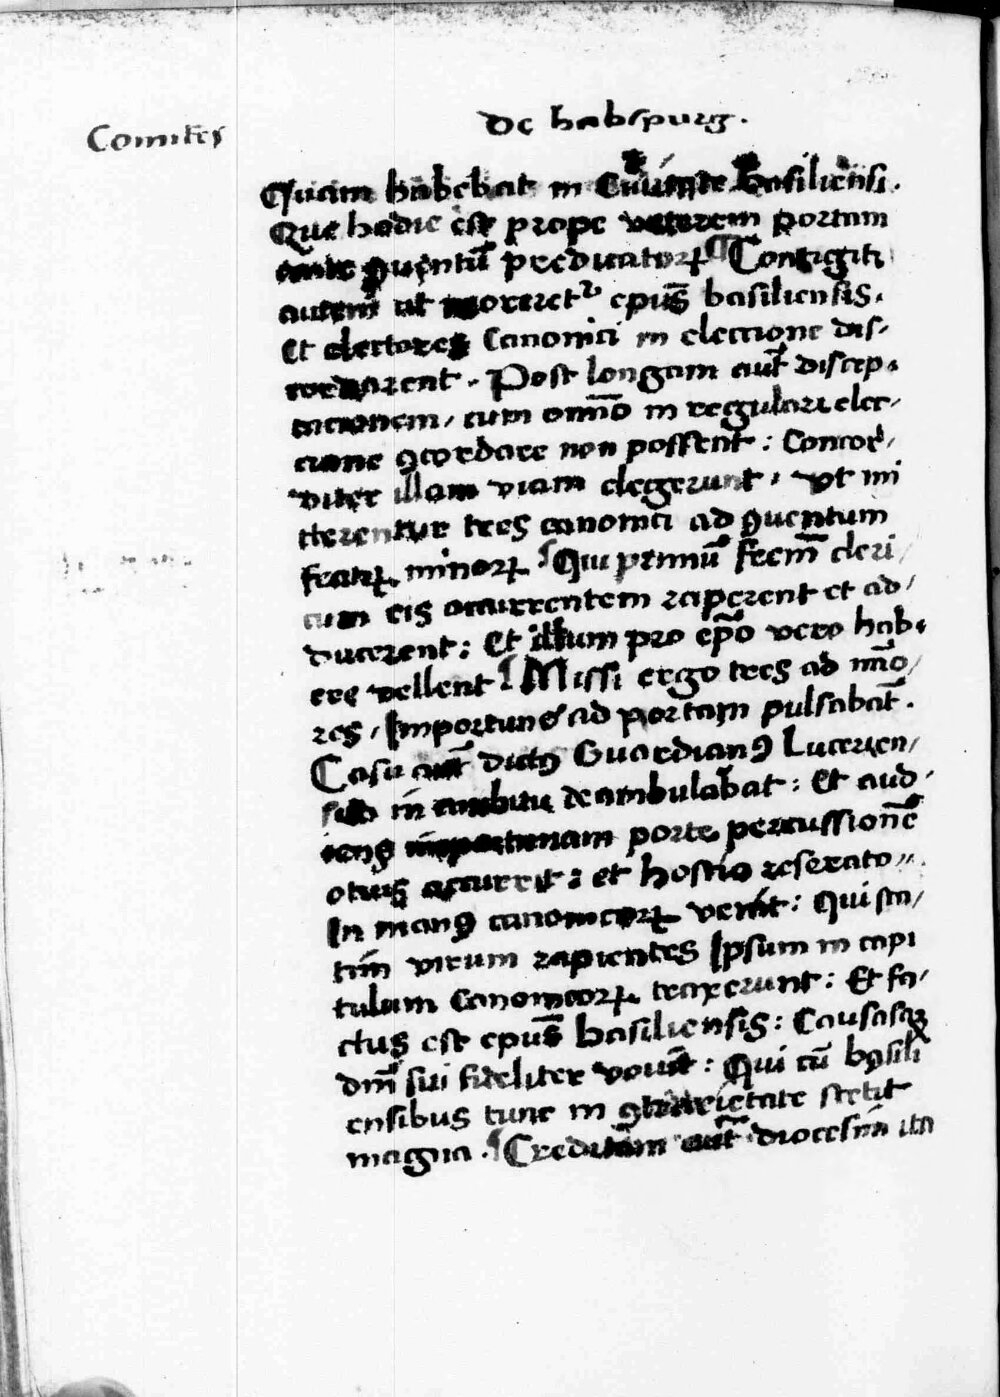 Comites
de habspurg.
Quam habebat in Ciuitate Basiliensi.
Que hodie est prope veterem portam
ante ꝯuentū predicatoꝝ ¶ Contigit
autem ut moreretᷣ epūs basiliensis.
Et electores Canonici in electione dis-
cordarent. Post longam aūt discep-
tacionem, cum om̄o in regulari elec-
cione ꝯcordare non possent: Concor-
diter illam viam elegerunt, vt mi
tterentur tres canonici ad ꝯuentum
fratꝝ minoꝝ ¶ Qui primū frēm cleri-
cum eis occurrentem raperent et ad-
ducerent: Et illum pro ep̄o vero hab-
ere vellent ¶ Missi ergo tres ad mīo-
res, Importune ad portam pulsabāt.
Casu aūt dictꝰ Guardianꝰ Lucerien-
sis in ambitu deambulabat: Et aud-
iens importunam porte percussionē
otius accurrit: et hostio reserato
In manꝰ canonicoꝝ venit: Qui sta-
tim virum rapientes Ipsum in capi
tulum Canonicoꝝ traxerunt: Et fa-
ctus est epūs basiliensis: Causasqꝫ
dn̄i sui fideliter vouit: Qui cū basili
ensibus tunc in ꝯtrarietate stetit
magna. ¶ Creditam aūt diocesim ita